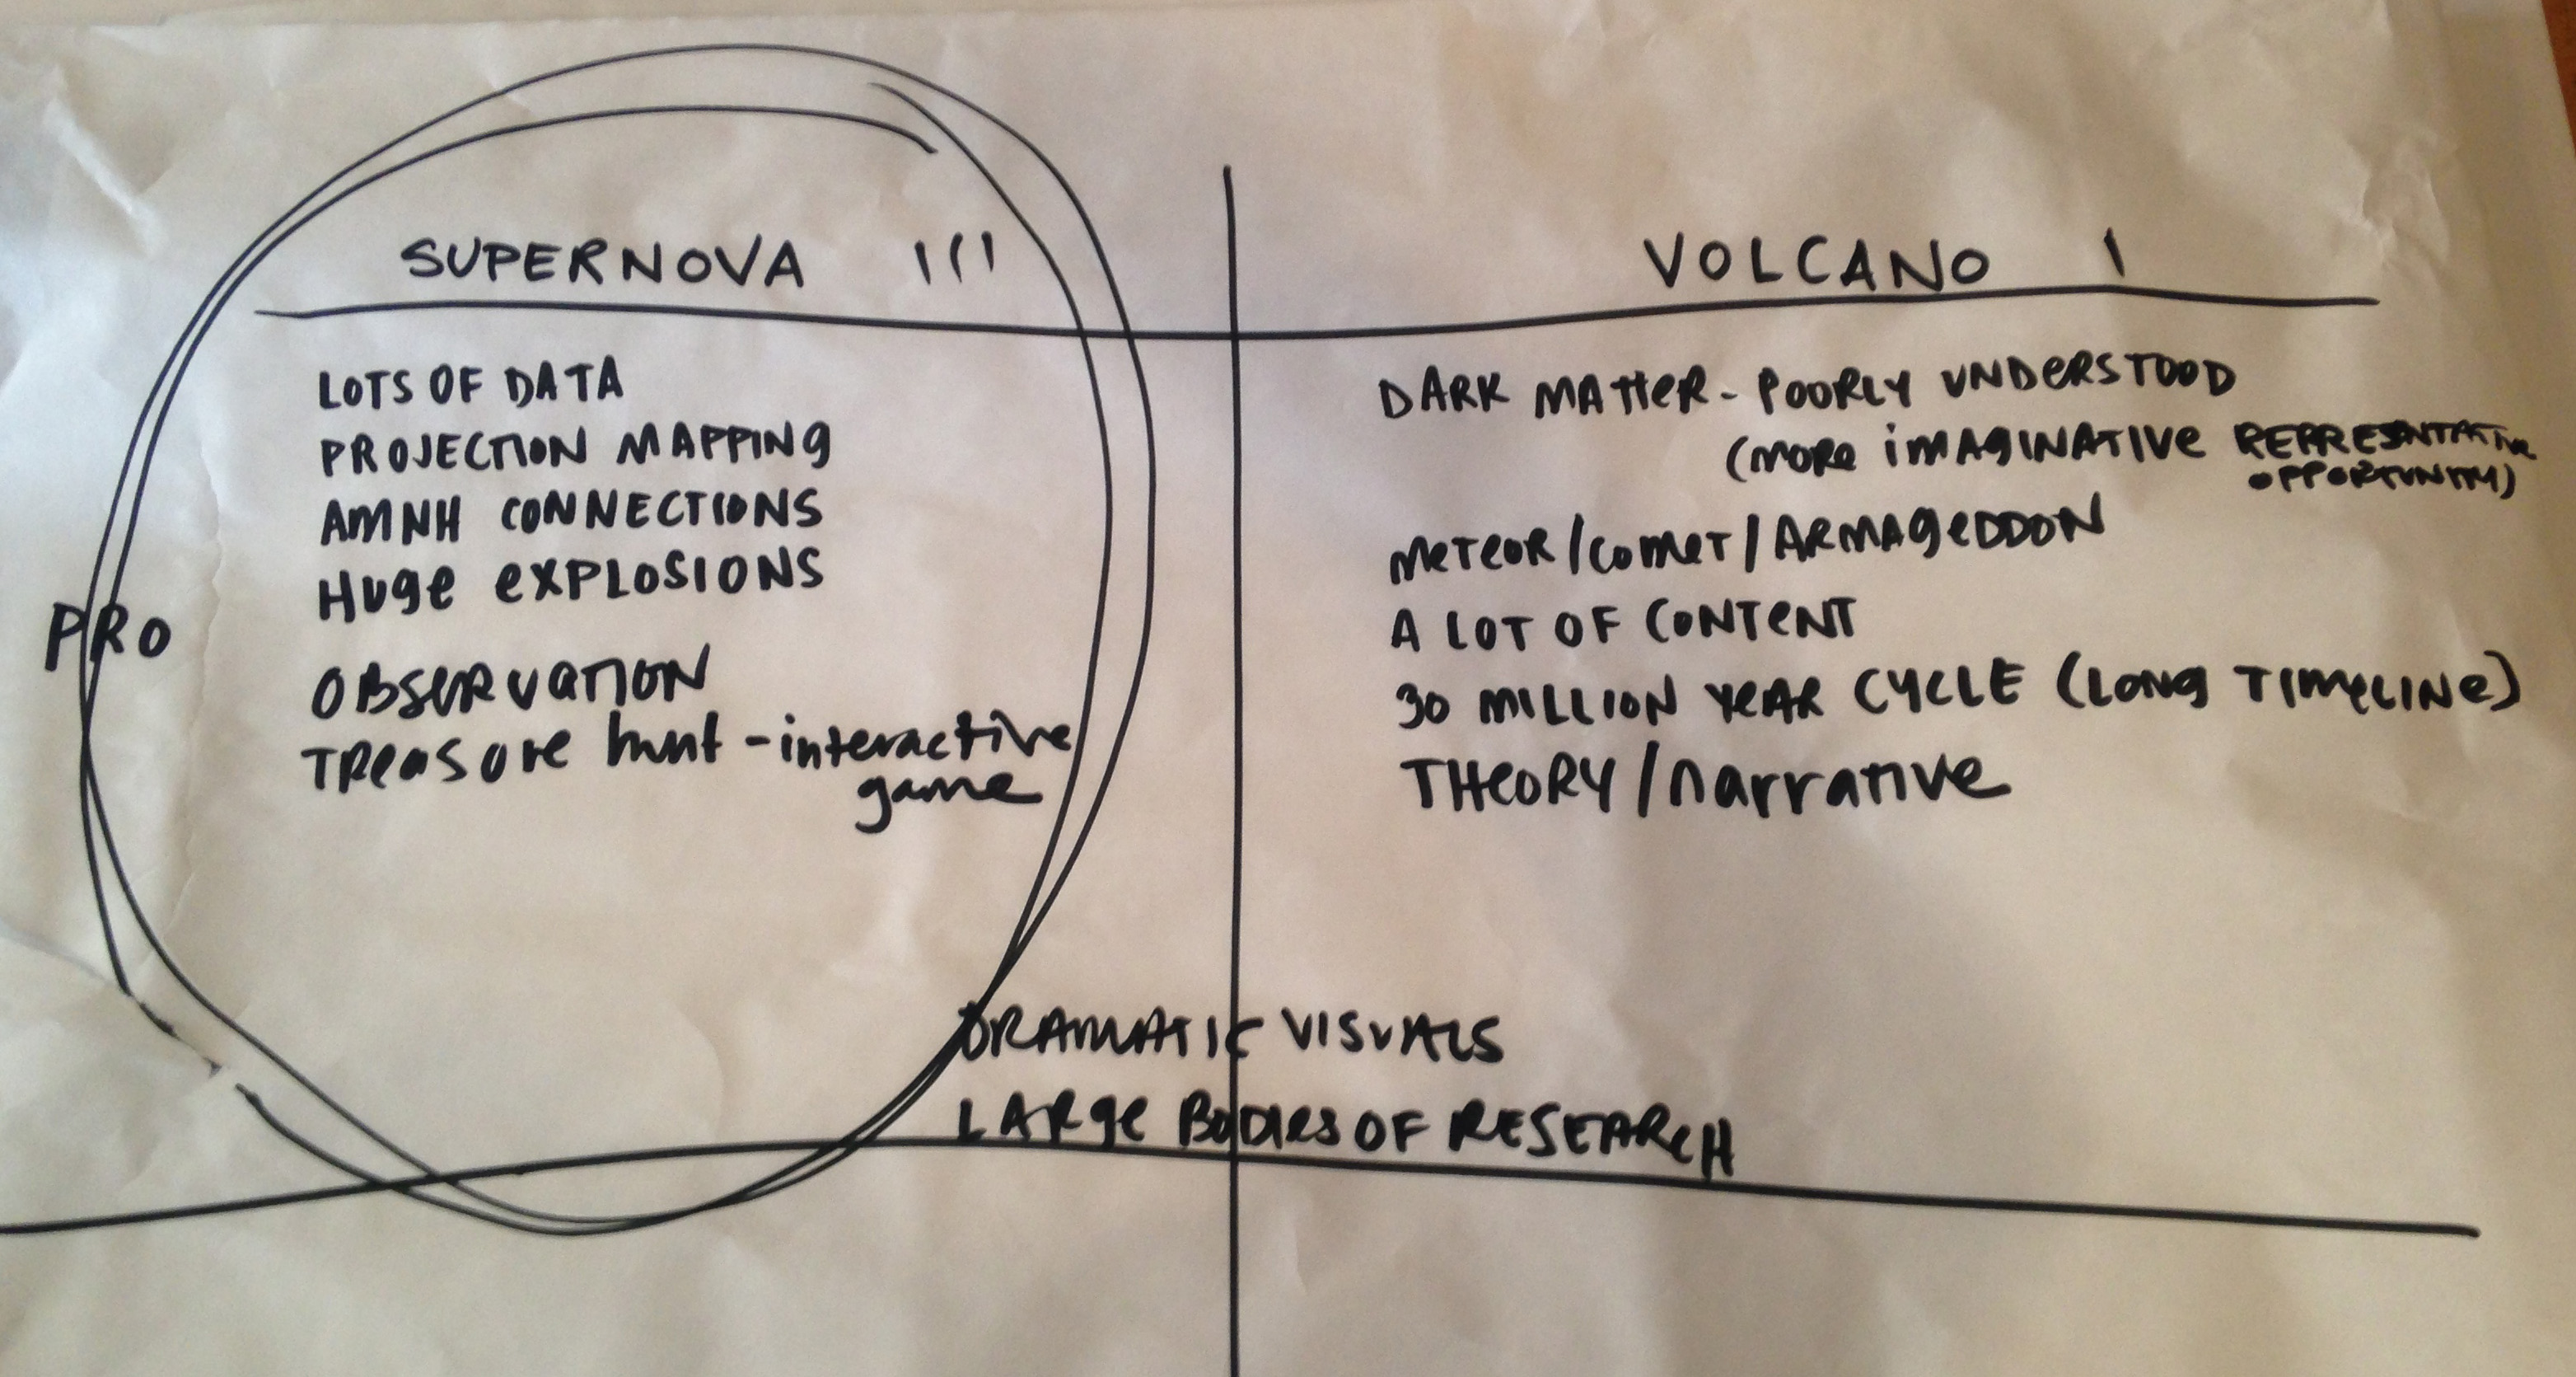 SUPERNOVA III
LOTS OF DATA
PROJECTION MAPPING
AMNH CONNECTIONS
HUge eXPLOSIONS
PRO
OBSERVATION
TReASURe hunt - interactive
game
VOLCANO I
DARK MATTeR - POORLY UNDeRSTOOD
(MORe iMAgINATIVe REPRESENTATIVe
OPPORTUNITY)
MeTeOR/COMeT/ARMAgeDDON
A LOT OF CONTeNT
30 MILLION YeAR CYCLE (LONg TIMeLINe)
THeORY/narrative
DRAMATIC VISUALS
LARge BODIeS OF RESEARCH